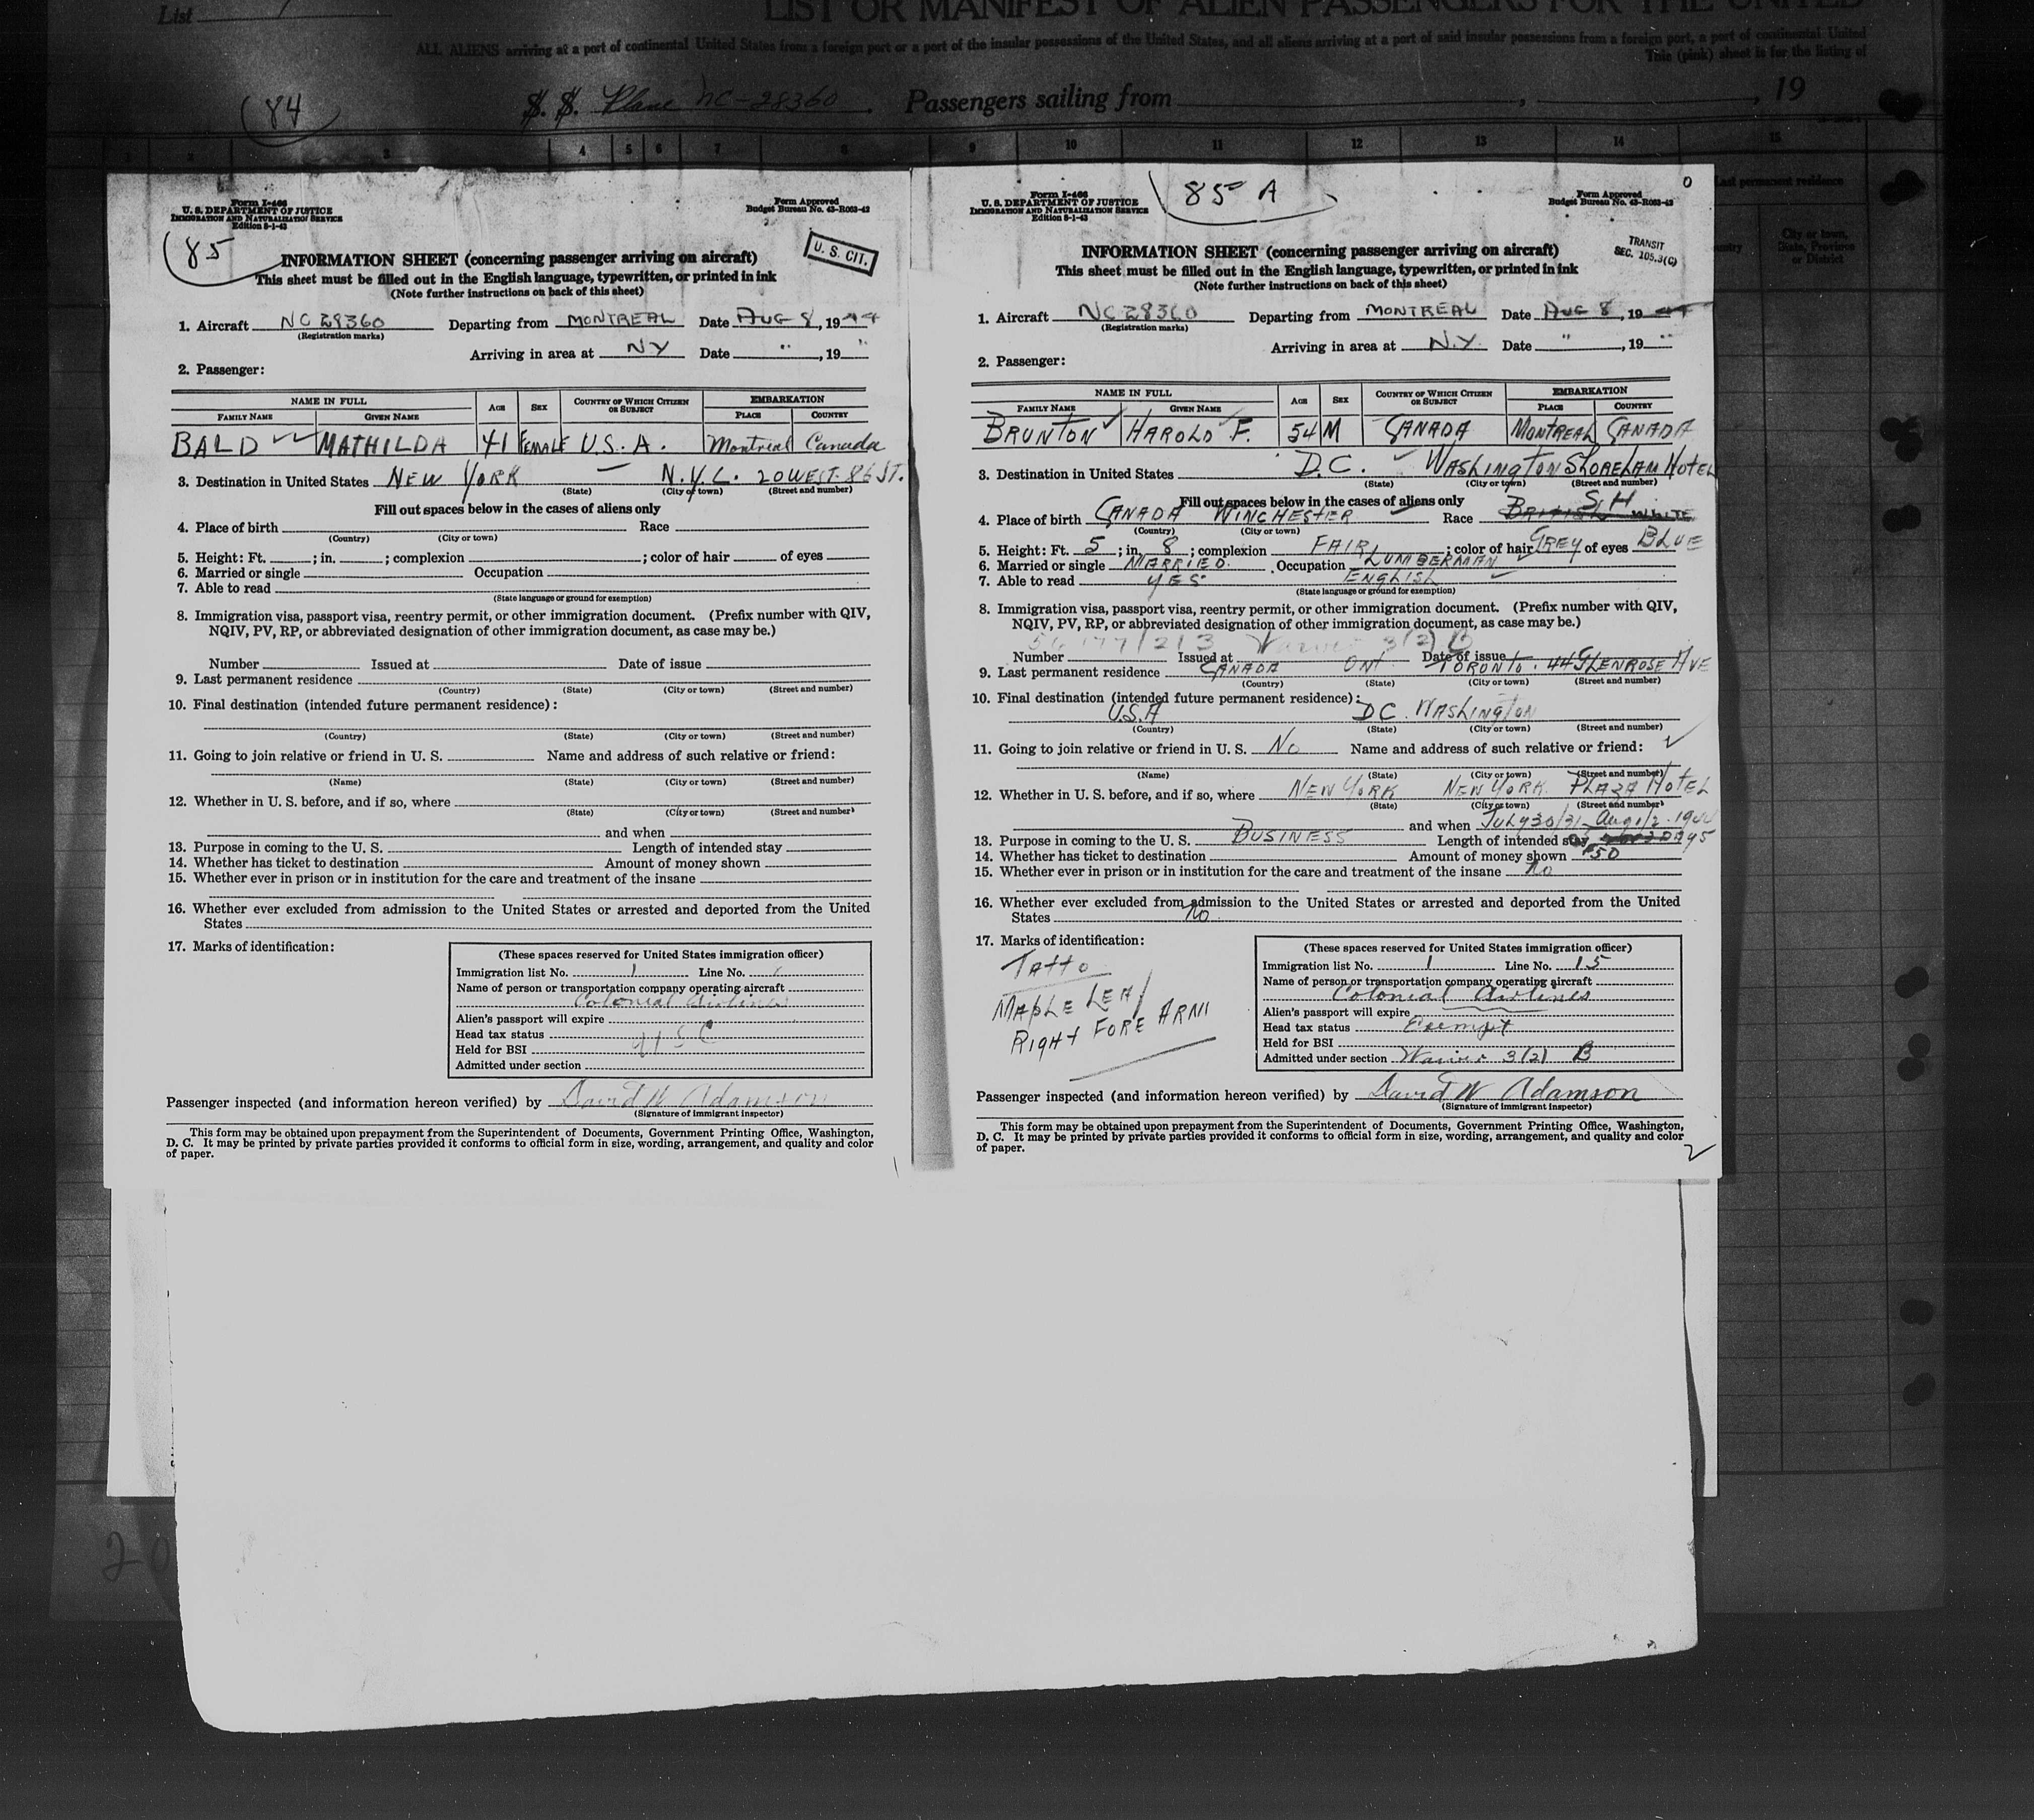 List
LIST OR MANIFEST OF ALIEN PASSENGERS FOR THE UNITED
ALL ALIENS arriving at a port of continental United States from a foreign port or a port of the insular possessions of the United States, and all aliens arriving at a port of said insular possessions from a foreign port, a port of continental United
This (pink) sheet is for the listing of
84 S. S. Plane NC-28360 . Passengers sailing from , , 19
1 2 3 4 5 6 7 8 9 10 11 12 13 14 15
Last permanent residence
City or town, State, Province or District
Form I-466
U. S. DEPARTMENT OF JUSTICE
IMMIGRATION AND NATURALIZATION SERVICE
Edition 8-1-43
Form Approved
Budget Bureau No. 43-R063-42
85
U. S. CIT.
INFORMATION SHEET (concerning passenger arriving on aircraft)
This sheet must be filled out in the English language, typewritten, or printed in ink
(Note further instructions on back of this sheet)
1. Aircraft NC 28360 Departing from MONTREAL Date AUG 8, 1944
(Registration marks)
Arriving in area at NY Date " , 19 "
2. Passenger:
NAME IN FULL AGE SEX COUNTRY OF WHICH CITIZEN OR SUBJECT EMBARKATION
FAMILY NAME GIVEN NAME PLACE COUNTRY
BALD MATHILDA 41 FEMALE U.S.A. Montreal Canada
3. Destination in United States NEW YORK N.Y.C. 20 WEST. 86 ST.
(State) (City or town) (Street and number)
Fill out spaces below in the cases of aliens only
4. Place of birth Race
(Country) (City or town)
5. Height: Ft. ; in. ; complexion ; color of hair of eyes
6. Married or single Occupation
7. Able to read
(State language or ground for exemption)
8. Immigration visa, passport visa, reentry permit, or other immigration document. (Prefix number with QIV,
NQIV, PV, RP, or abbreviated designation of other immigration document, as case may be.)
Number Issued at Date of issue
9. Last permanent residence
(Country) (State) (City or town) (Street and number)
10. Final destination (intended future permanent residence):
(Country) (State) (City or town) (Street and number)
11. Going to join relative or friend in U. S. Name and address of such relative or friend:
(Name) (State) (City or town) (Street and number)
12. Whether in U. S. before, and if so, where
(State) (City or town) (Street and number)
and when
13. Purpose in coming to the U. S. Length of intended stay
14. Whether has ticket to destination Amount of money shown
15. Whether ever in prison or in institution for the care and treatment of the insane
16. Whether ever excluded from admission to the United States or arrested and deported from the United
States
17. Marks of identification:
(These spaces reserved for United States immigration officer)
Immigration list No. 1 Line No.
Name of person or transportation company operating aircraft
Colonial Airlines
Alien's passport will expire
Head tax status
USC
Held for BSI
Admitted under section
Passenger inspected (and information hereon verified) by David W Adamson
(Signature of immigrant inspector)
This form may be obtained upon prepayment from the Superintendent of Documents, Government Printing Office, Washington,
D. C. It may be printed by private parties provided it conforms to official form in size, wording, arrangement, and quality and color
of paper.
Form I-466
U. S. DEPARTMENT OF JUSTICE
IMMIGRATION AND NATURALIZATION SERVICE
Edition 8-1-43
85 A
Form Approved
Budget Bureau No. 43-R063-42
TRANSIT
SEC. 105.3(C)
INFORMATION SHEET (concerning passenger arriving on aircraft)
This sheet must be filled out in the English language, typewritten, or printed in ink
(Note further instructions on back of this sheet)
1. Aircraft NC 28360 Departing from MONTREAL Date AUG 8, 1944
(Registration marks)
Arriving in area at N.Y. Date " , 19 "
2. Passenger:
NAME IN FULL AGE SEX COUNTRY OF WHICH CITIZEN OR SUBJECT EMBARKATION
FAMILY NAME GIVEN NAME PLACE COUNTRY
BRUNTON HAROLD F. 54 M CANADA MONTREAL CANADA
3. Destination in United States D.C. WASHINGTON SHOREHAM HOTEL
(State) (City or town) (Street and number)
Fill out spaces below in the cases of aliens only
4. Place of birth CANADA WINCHESTER Race BRITISH WHITE SH
(Country) (City or town)
5. Height: Ft. 5 ; in. 8 ; complexion FAIR ; color of hair GREY of eyes BLUE
6. Married or single MARRIED. Occupation LUMBERMAN
7. Able to read YES ENGLISH
(State language or ground for exemption)
8. Immigration visa, passport visa, reentry permit, or other immigration document. (Prefix number with QIV,
NQIV, PV, RP, or abbreviated designation of other immigration document, as case may be.)
Waiver 3(2) B
Number Issued at Date of issue
9. Last permanent residence CANADA ONT. TORONTO. 44 GLENROSE AVE
(Country) (State) (City or town) (Street and number)
10. Final destination (intended future permanent residence):
U.S.A DC. WASHINGTON
(Country) (State) (City or town) (Street and number)
11. Going to join relative or friend in U. S. NO Name and address of such relative or friend:
(Name) (State) (City or town) (Street and number)
12. Whether in U. S. before, and if so, where NEW YORK NEW YORK. PLAZA HOTEL
(State) (City or town) (Street and number)
and when JULY 30/31 - Aug 1/2. 1944
13. Purpose in coming to the U. S. BUSINESS Length of intended stay DAYS
14. Whether has ticket to destination Amount of money shown $50
15. Whether ever in prison or in institution for the care and treatment of the insane No
16. Whether ever excluded from admission to the United States or arrested and deported from the United
States No
17. Marks of identification:
TATTO
MAPLE LEAF
RIGHT FORE ARM
(These spaces reserved for United States immigration officer)
Immigration list No. 1 Line No. 15
Name of person or transportation company operating aircraft
Colonial Airlines
Alien's passport will expire
Head tax status Exempt
Held for BSI
Admitted under section Waiver 3(2) B
Passenger inspected (and information hereon verified) by David W Adamson
(Signature of immigrant inspector)
This form may be obtained upon prepayment from the Superintendent of Documents, Government Printing Office, Washington,
D. C. It may be printed by private parties provided it conforms to official form in size, wording, arrangement, and quality and color
of paper.
2
20